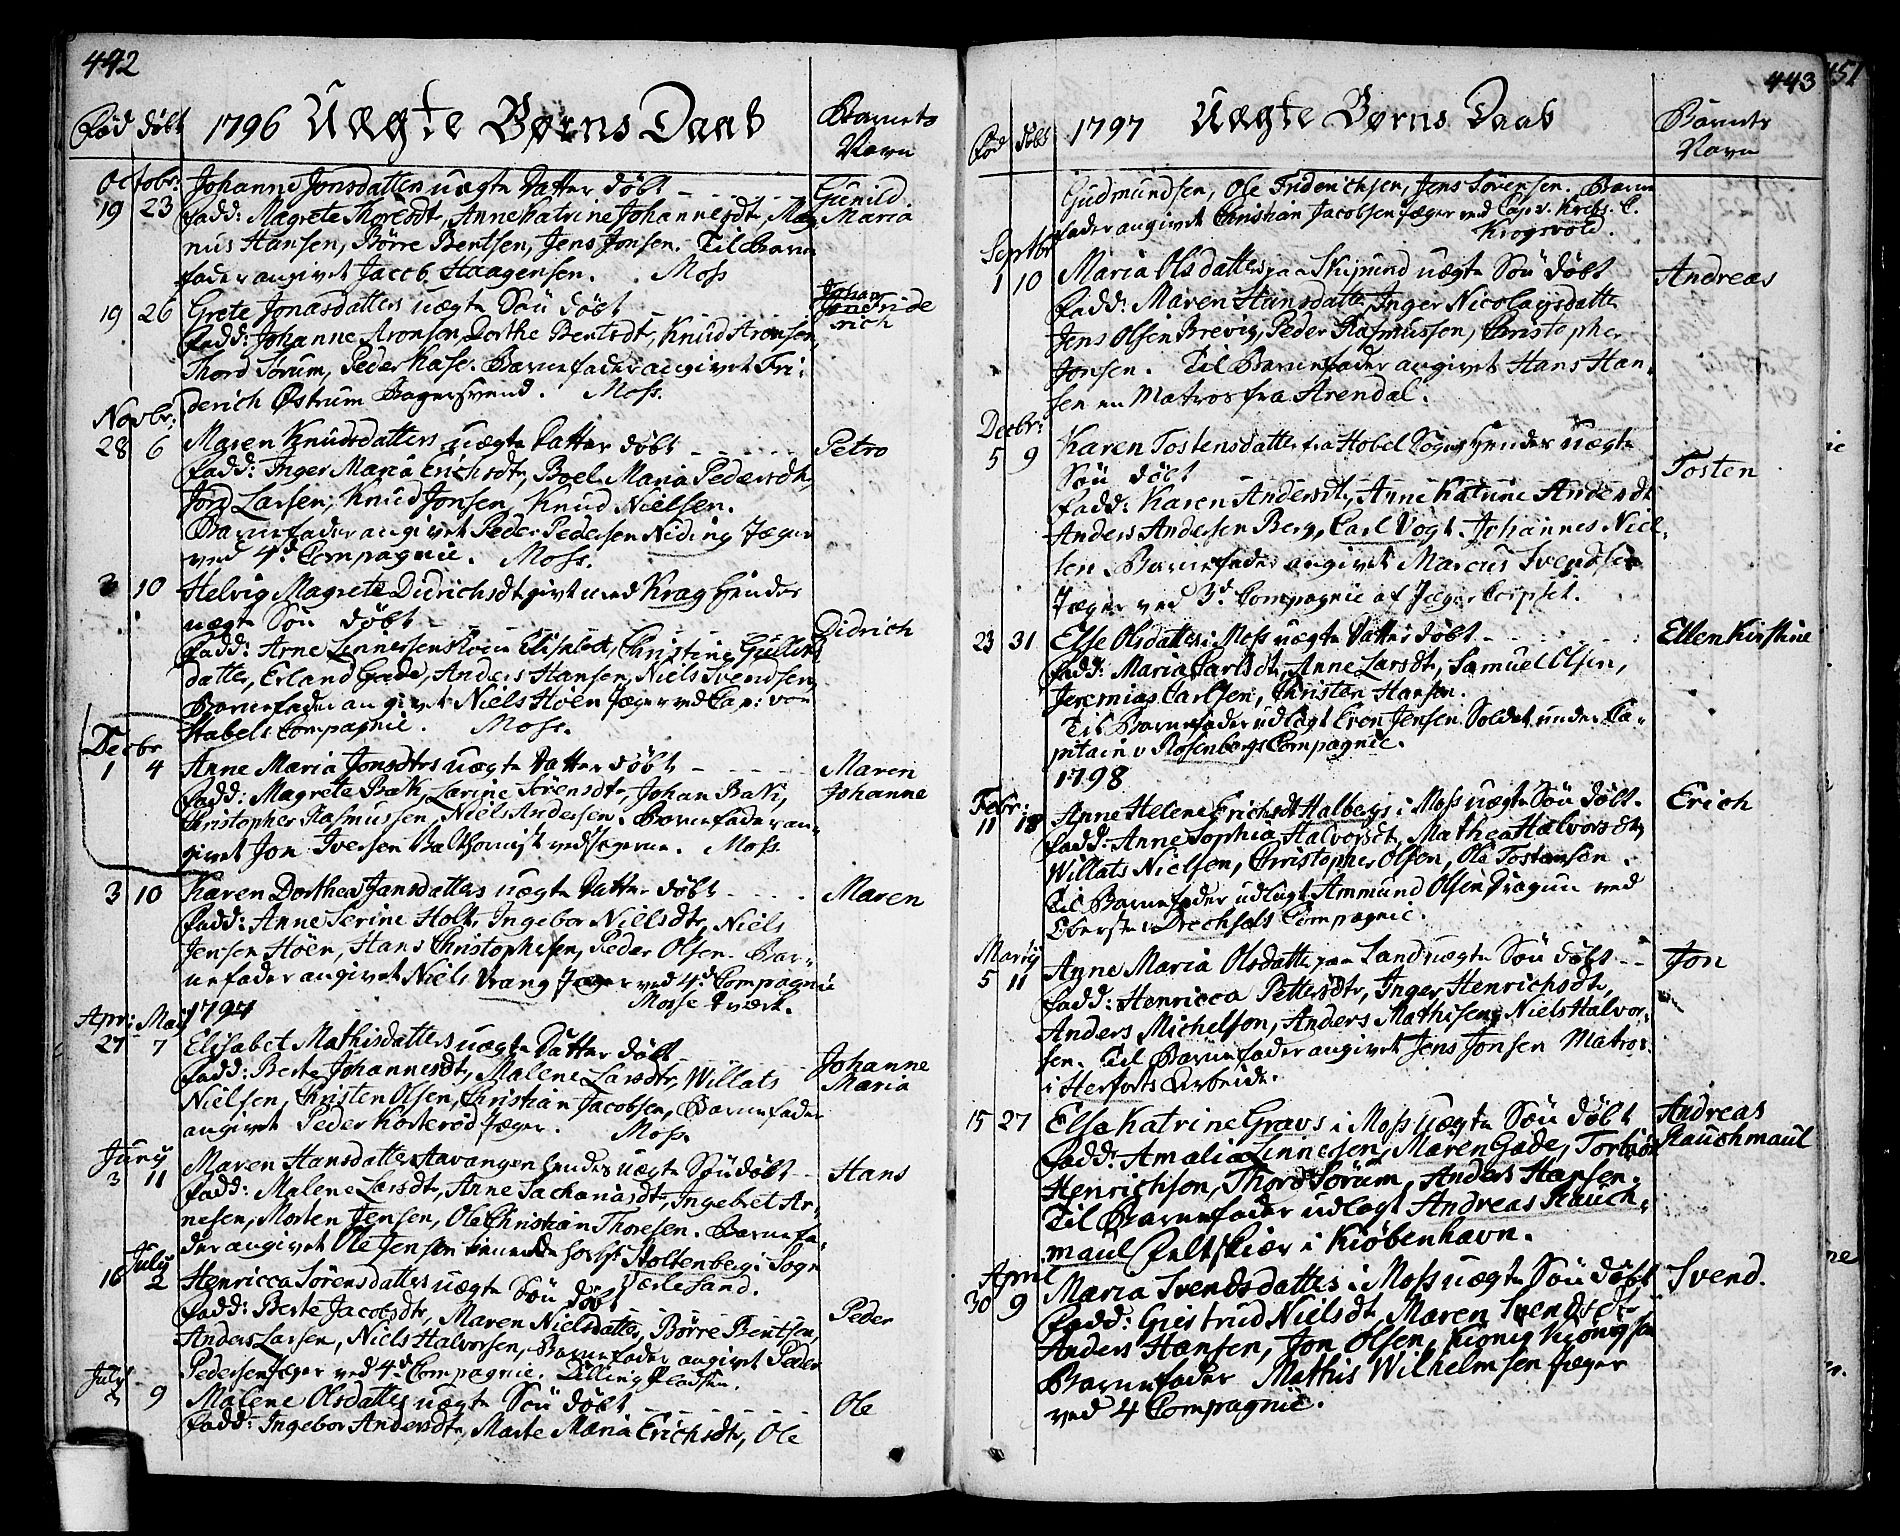 442
Fød døbt 1796 Uægte Børns Daab Barnets
Navn
Octobr: Johanne Jonsdatters uægte Datter døbt Gunild
19 23 Fadd: Magrete Thoresdt, Anne Katrine Johannesdt, Mag Maria
nus Hansen, Børre Bentsen, Jens Jonsen. Til Barne
fader angivet Jacob Haagensen. Moss
19 26 Grete Jonasdatters uægte Søn døbt Johan
Fadd: Johanne Aronsen, Dorthe Bentsdt, Knud Aronsen, rich
Thord Sørum, Peder Kase. Barnefader angivet Fri-
derich Østrum Bagersvend. Moss.
Novbr:
28 6 Maren Knudsdatters uægte Datter døbt Petro
Fadd: Inger Maria Erichsdt, Boel Maria Pedersdtr,
Jørd Larsen, Knud Jonsen, Knud Nielsen.
Barnefader angivet Peder Pedersen Niding Jæger
ved 4d Compagnie. Moss.
3 10 Helvig Magrete Didrichsdt givt med Krag hendes
uægte Søn døbt Didrich
Fadd: Arne Linnersens Elisabet, Christine Gulliks
datter, Erland Gade, Anders Hansen, Niels Svendsen,
Barnefader angivet Niels Høen Jæger ved Cap: von
Stabels Compagnie. Moss.
Decbr
1 4 Anne Maria Jonsdtrs uægte Datter døbt Maren
Fadd: Magrete Bak, Larine Sørensdtr, Johan Bak, Johanne
Christopher Rasmussen, Niels Andersen. Barnefader an-
givet Jon Iversen Valthornist ved Jægerne. Moss.
3 10 Karen Dorthea Jansdatters uægte Datter døbt Maren
Fadd: Anne Serine Holt, Ingebor Nielsdtr, Niels
Jensen Høen, Hans Christophersen, Peder Olsen. Bar-
nefader angivet Niels Vrang Jæger ved 4d Compagnie
Mosse
1797
Apr: Maj
27 7 Elisabet Mathisdatters uægte Datter døbt Johanne
Fadd: Berte Johannesdtr, Malene Larsdtr, Willats Maria
Nielsen, Christen Olsen, Christian Jacobsen, Barnefader
angivet Peder Korterød Jæger. Moss.
Juny
3 11 Maren Hansdatter Stavangen hendes uægte Søn døbt Hans
Fadd: Malene Larsdt, Anne Sachariasdt, Ingebret Ar-
nesen, Morten Jensen, Ole Christian Thoresen. Barnefa-
der angivet Ole Jensen tienende hos Hr Stoltenberg i Sogn
July
16 2 Henricca Sørensdatters uægte Søn døbt
Fadd: Berte Jacobsdtr, Maren Nielsdatter, Børre Bentsen, Peder
Anders Larsen, Niels Halvorsen, Barnefader angivet Peder
Pedersen Jæger ved 4d Compagnie. Dilling Pladsen.
July
2 9 Malene Olsdatters uægte Søn døbt Ole
Fadd: Ingebor Andersdtr, Marte Maria Erichsdtr, Ole
443
Fød døbt 1797 Uægte Børns Daab Barnets
Navn
Gudmundsen, Ole Friderichsen, Jens Sørensen. Barne
fader angivet Christian Jacobsen Jæger ved Cap: v. Krebs. C.
Krogsvold.
Septbr
1 10 Maria Olsdatters paa Skipsund uægte Søn døbt Andreas
Fadd: Maren Hansdatter, Inger Nicolaysdatter
Jens Olsen Brevig, Peder Rasmussen, Christopher
Jonsen. Til Barnefader angivet Hans Han-
sen en Matros fra Arendal.
Decbr:
5 9 Karen Tostensdatter fra Hobel Sogn hendes uægte
Søn døbt Tosten
Fadd: Karen Andersdtr, Anne Katrine Andersdt
Anders Andersen Berg, Carl Vogt, Johannes Niel-
sen. Barnefader angivet Marcus Svendsen
Jæger ved 3d Compagnie af Jæger Corpset.
23 31 Else Olsdatters i Moss uægte Datter døbt Ellen Kirstine
Fadd: Maria Carlsdt, Anne Larsdt, Samuel Olsen,
Jeremias Carlsen, Christen Hansen.
Til Barnefader udlagt Even Jensen Soldat under Ca-
pitain v Rosenbergs Compagnie.
1798
Febr:
11 18 Anne Helene Erichsdt Halbergs i Moss uægte Søn døbt. Erich
Fadd: Anne Sophia Halvorsdt, Mathea Halvorsdt,
Willats Nielsen, Christopher Olsen, Ole Tostensen.
Til Barnefader udlagt Ammund Olsen Dragun ved
Oberste Drechsels Compagnie.
Martij
5 11 Anne Maria Olsdatter paa Land uægte Søn døbt Jon
Fadd: Henricca Pettersdtr, Inger Henrichsdtr,
Anders Michelson, Anders Mathisen, Niels Halvor-
sen. Til Barnefader angivet Jens Jonsen Matros
i Herforts Arbeide.
15 27 Else Katrine Gravs i Moss uægte Søn døbt Andreas
Fadd: Amalia Linnesen, Maren Gade, Torbiør Rauchmaul
Henrichson, Thord Sørum, Anders Hansen.
Til Barnefader udlagt Andreas Rauch-
maul Feltskiær i Kiøbenhavn.
April
30 9 Maria Svendsdatters i Moss uægte Søn døbt Svend.
Fadd: Giertrud Nielsdt, Maren Svendsdtr
Anders Hansen, Jon Olsen, Kionig Kionigsen
Barnefader Mathis Wilhelmsen Jæger
ved 4 Compagnie.
451